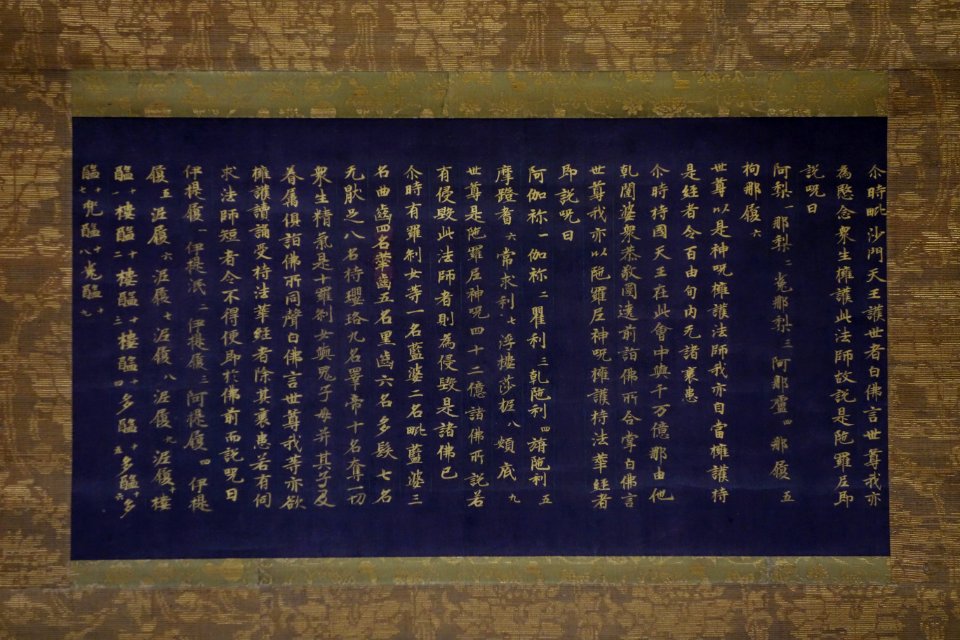 尒時毗沙門天王護世者白佛言世尊我亦
為愍念衆生擁護此法師故説是陁羅尼即
説呪曰
阿梨一那梨二㝹那梨三阿那盧四那履五
拘那履六
世尊以是神呪擁護法師我亦自當擁護持
是經者令百由旬内无諸衰患
尒時持國天王在此會中與千万億那由他
乹闥婆衆恭敬圍遶前詣佛所合掌白佛言
世尊我亦以陁羅尼神呪擁護持法華經者
即説呪曰
阿伽祢一伽祢二瞿利三乹陁利四旃陁利五
摩蹬耆六常求利七浮樓莎柅八頞底九
世尊是陁羅尼神呪四十二億諸佛所説若
有侵毀此法師者則為侵毀是諸佛已
尒時有羅刹女等一名藍婆二名毗藍婆三
名曲齒四名華齒五名黒齒六名多髮七名
无猒乏八名持瓔珞九名睪帝十名奪一切
衆生精氣是十羅刹女與鬼子母并其子及
眷属俱詣佛所同聲白佛言世尊我等亦欲
擁護讀誦受持法華經者除其衰患若有伺
求法師短者令不得便即於佛前而説呪曰
伊提履一伊提泯二伊提履三阿提履四伊提
履五泥履六泥履七泥履八泥履九泥履十樓
醯十一樓醯十二樓醯十三樓醯十四多醯十五多醯十六多
醯十七兜醯十八㝹醯十九